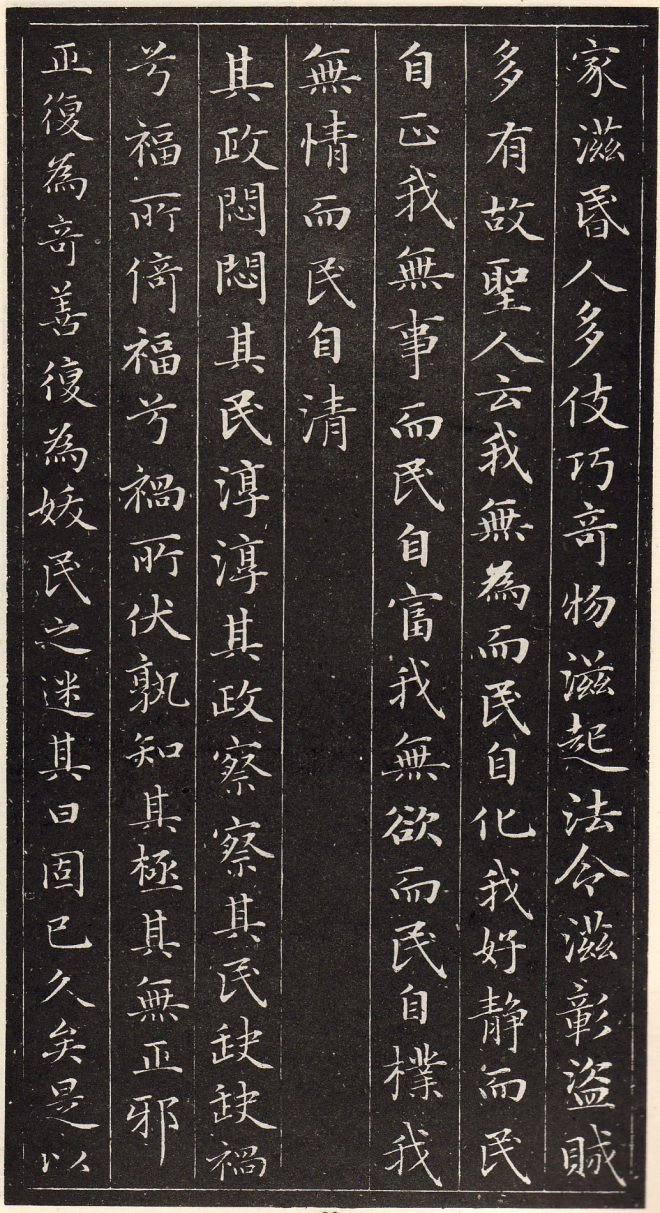 家滋昬人多伎巧奇物滋起法令滋彰盜賊
多有故聖人云我無為而民自化我好靜而民
自正我無事而民自富我無欲而民自樸我
無情而民自清
其政悶悶其民淳淳其政察察其民缺缺禍
兮福所倚福兮禍所伏孰知其極其無正邪
正復為奇善復為妖民之迷其日固已久矣是以